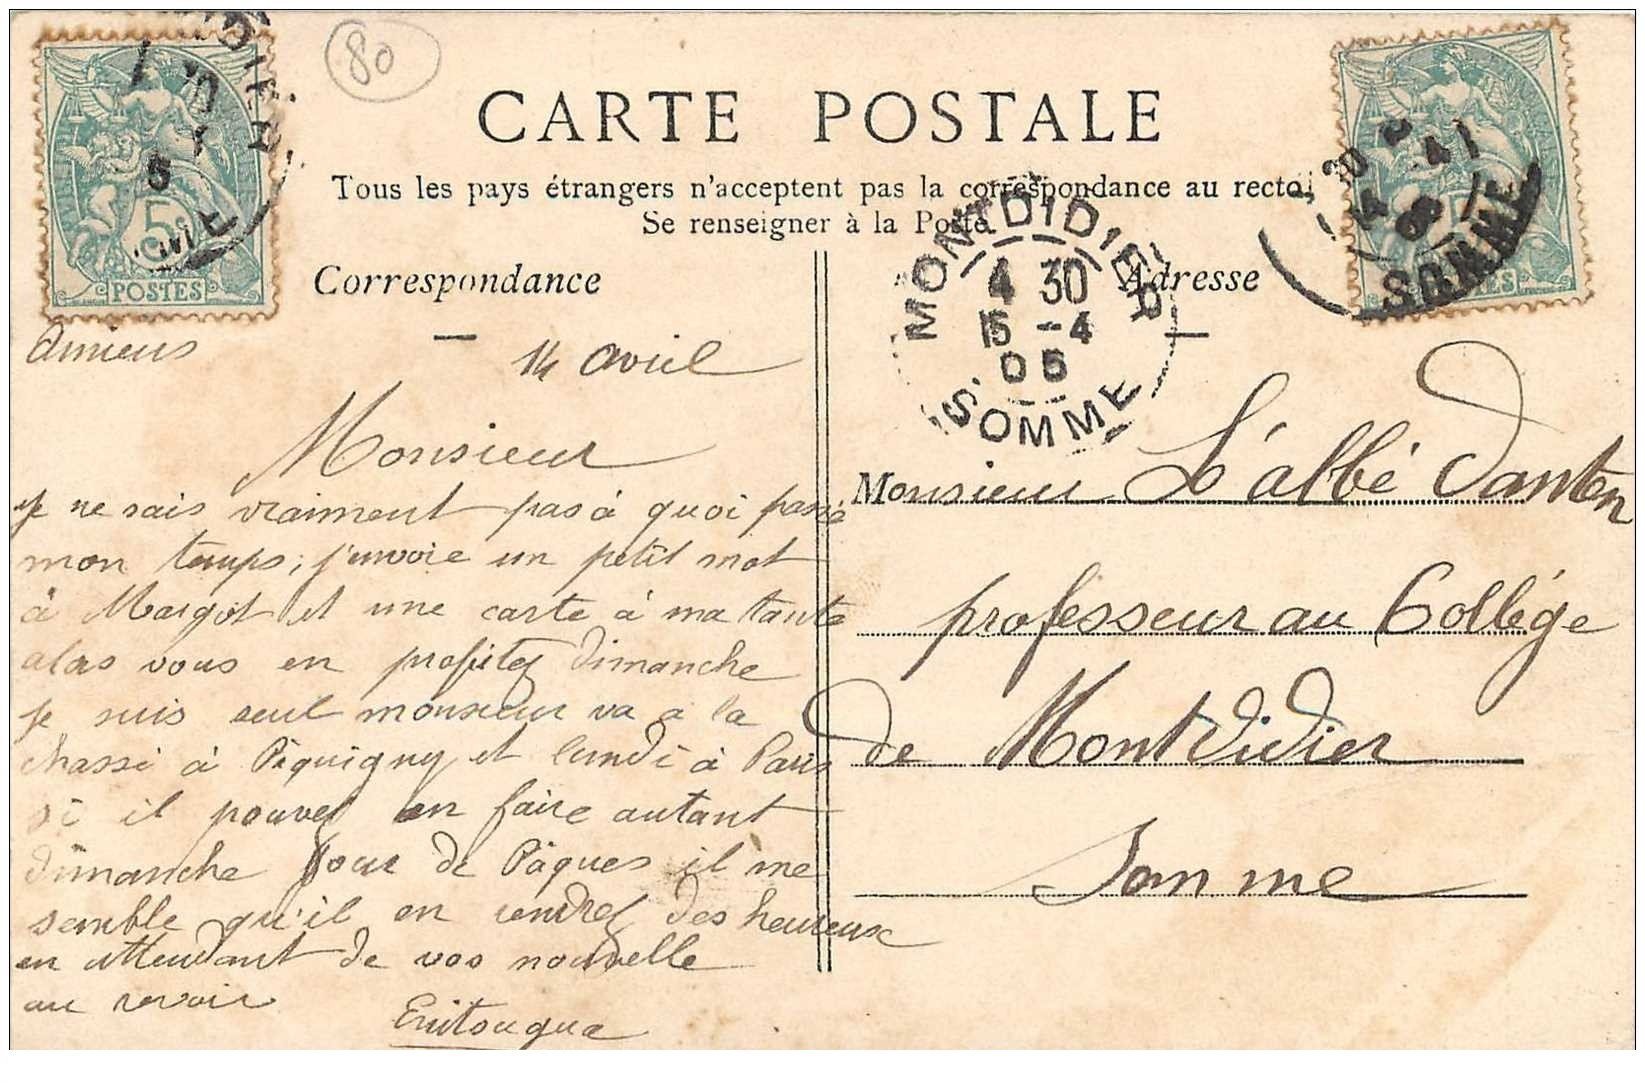 80
CARTE POSTALE
Tous les pays étrangers n'acceptent pas la correspondance au recto.
Se renseigner à la Poste.
Correspondance
Adresse
5c
POSTES
MONTDIDIER
4 30
15 -4
05
SOMME
SOMME
Amiens
14 avril
Monsieur
je ne sais vraiment pas à quoi passé
mon temps; j'envoie un petit mot
à Margot et une carte à ma tante
alors vous en profitez dimanche
je suis seul monsieur va a la
chasse à Piquigny et lundi à Paris
si il pouvez en faire autant
dimanche jour de Pâques il me
semble qu'il en rendrez des heureux
en attendant de vos nouvelle
au revoir
Monsieur L'abbé Danten
professeur au Collége
de Montdidier
Somme